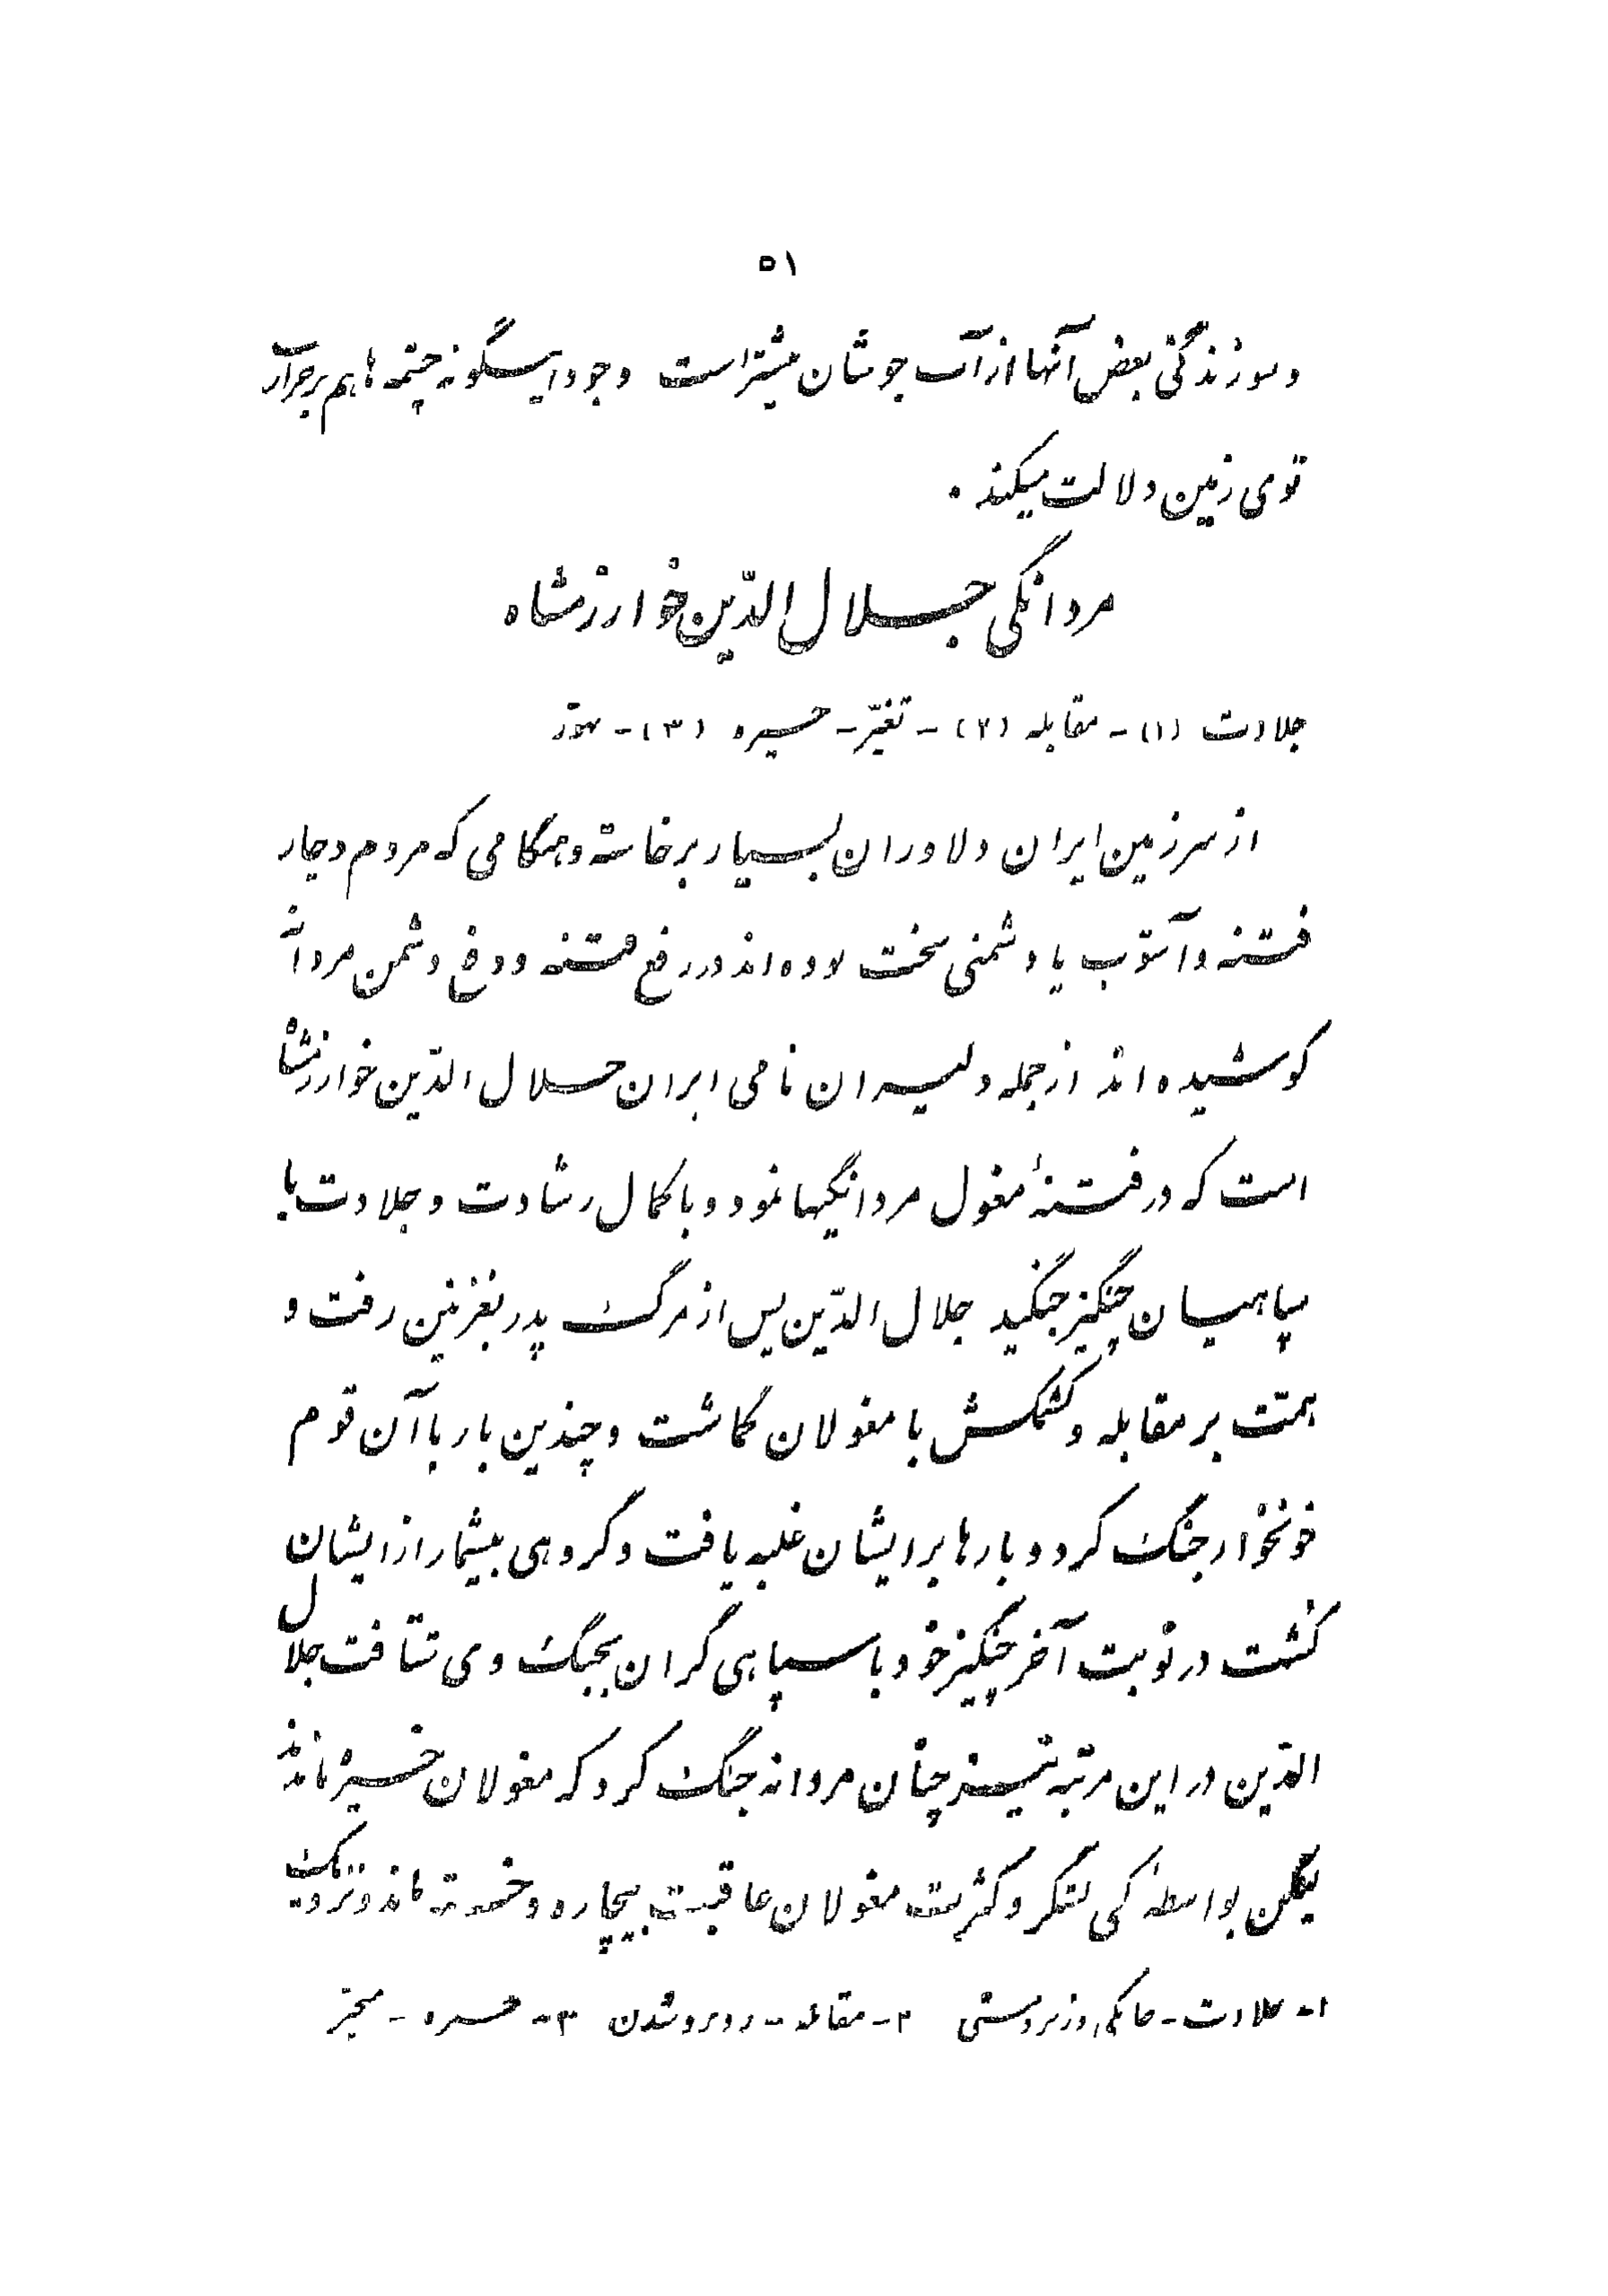 ۵۱
و سوزندگی بعض آنها از آب جوشان بیشتر است وجود اینگونه چشمه ها هم بر حرارت
توی زمین دلالت میکند .
مردانگی جلال الدّین خوارزمشاه
جلادت (۱) - مقابله (۲) - تغیّر - خیره (۳) - تهوّر
از سرزمین ایران دلاوران بسیار برخاسته و هنگامی که مردم دچار
فتنه و آشوب یا دشمنی سخت بوده اند در رفع فتنه و دفع دشمن مردانه
کوشیده اند از جمله دلیران نامی ایران جلال الدّین خوارزمشاه
است که در فتنهٔ مغول مردانگیها نمود و با کمال رشادت و جلادت با
سپاهیان چنگیز جنگید جلال الدّین پس از مرگ پدر بغزنین رفت و
همّت بر مقابله و کشمکش با مغولان گماشت و چندین بار با آن قوم
خونخوار جنگ کرد و بارها بر ایشان غلبه یافت و گروهی بیشمار از ایشان
کشت در نوبت آخر چنگیز خود با سپاهی گران بجنگ وی شتافت جلال
الدّین در این مرتبه نیز چنان مردانه جنگ کرد که مغولان خیره ماندند
لیکن بواسطهٔ کمی لشکر و کثرت مغولان عاقبت بیچاره و خسته ماند و نزدیک
۱- جلادت - چابکی و زبردستی ۲- مقابله - روبرو شدن ۳- خیره - متحیّر